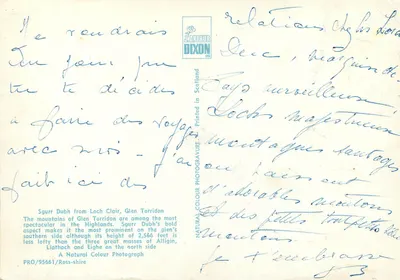 Je voudrais
Un jour que
tu te décides
à faire des voyages
avec moi - j'ai
fait ici des
relations chez les
Duc, marquis de
Pays merveilleux
Lochs majestueux
montagnes sauvages
où paissent
d'adorables moutons
et des petits
moutons
Je t'embrasse
J. ARTHUR
DIXON
Printed in Scotland
Sgurr Dubh from Loch Clair, Glen Torridon
The mountains of Glen Torridon are among the most
spectacular in the Highlands. Sgurr Dubh's bold
aspect makes it the most prominent on the glen's
southern side although its height of 2,566 feet is
less lofty than the three great masses of Alligin,
Liathach and Eighe on the north side
A Natural Colour Photograph
PRO/95661/Ross-shire